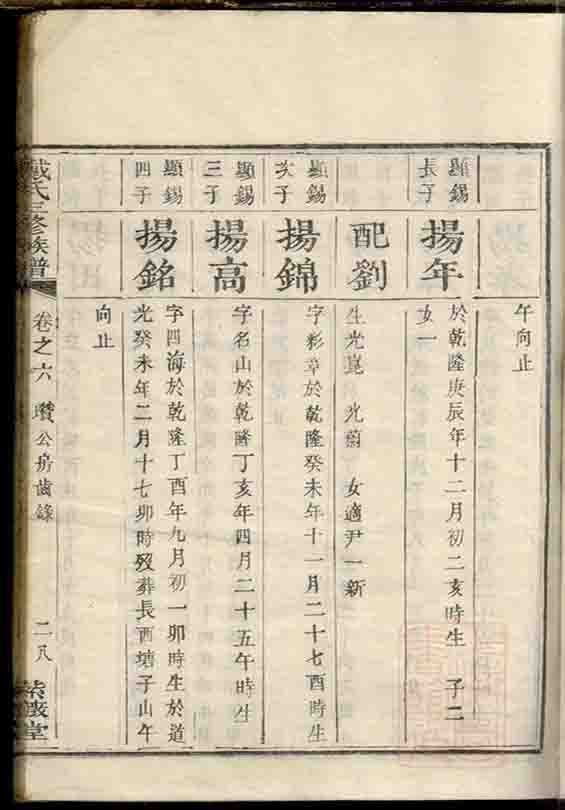 午向止
顯錫長子
揚年
於乾隆庚辰年十二月初二亥時生 子二
女一
配劉
生光崑 光蔚 女適尹一新
顯錫次子
揚錦
字彩章於乾隆癸未年十一月二十七酉時生
顯錫三子
揚高
字名山於乾隆丁亥年四月二十五午時生
顯錫四子
揚銘
字四海於乾隆丁酉年九月初一卯時生於道
光癸未年二月十七卯時歿葬長酉塘子山午
向止
戴氏三修族譜
卷之六 瓚公房齒錄
二八